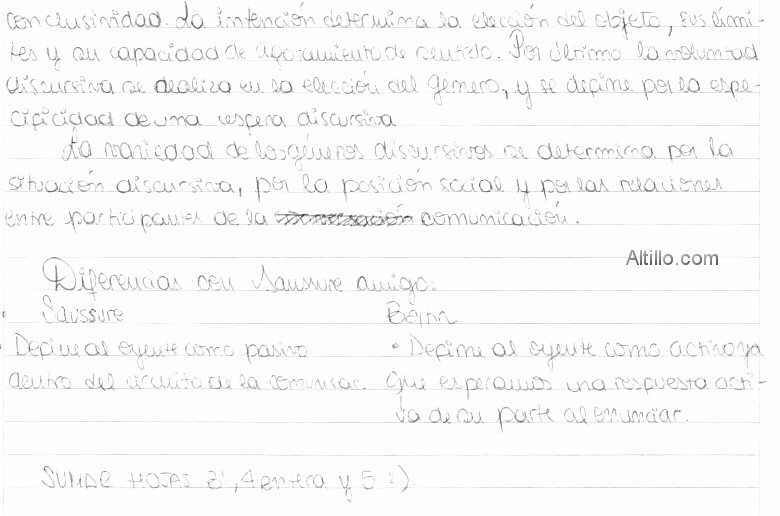 conclusividad. La intención determina la elección del objeto, sus lími-
tes y su capacidad de agotamiento de sentido. Por último la voluntad
discursiva se realiza en la elección del género, y se define por la espe-
cificidad de una esfera discursiva
La variedad de los géneros discursivos se determina por la
situación discursiva, por la posición social y por las relaciones
entre participantes de la comunicación.
Altillo.com
Diferencias con Saussure amigo:
Saussure
• Define al oyente como pasivo
dentro del circuito de la comunicac.
• Define al oyente como activo ya
que esperamos una respuesta acti-
va de su parte al enunciar.
SUMAR HOJAS 2', 4 entera y 5 :)